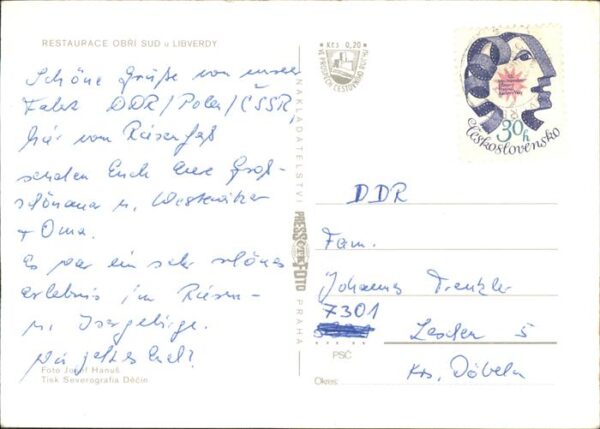 RESTAURACE OBŘÍ SUD u LIBVERDY
Schöne Grüße von unserer
Fahrt DDR/Polen/ČSSR,
hier vom Riesenfaß
senden Euch Eure Groß-
schönauer u.
+ Oma.
Es war ein sehr schönes
erlebnis im Riesen-
u. Isergebirge.
Wie geht es Euch?
Foto Josef Hanuš
Tisk Severografia Děčín
NAKLADATELSTVÍ
PRESSFOTO
PRAHA
Kčs 0,20
VE PROSPĚCH CESTOVNÍHO RUCHU
30h
Československo
DDR
Fam.
Johannes Trenkler
7301
Leschen 5
PSČ
Krs. Döbeln
Okres: